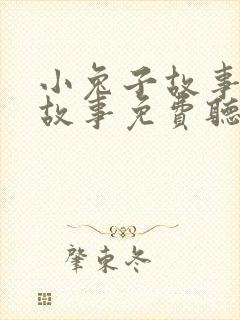 小兔子故事
故事免費聽
肇東冬